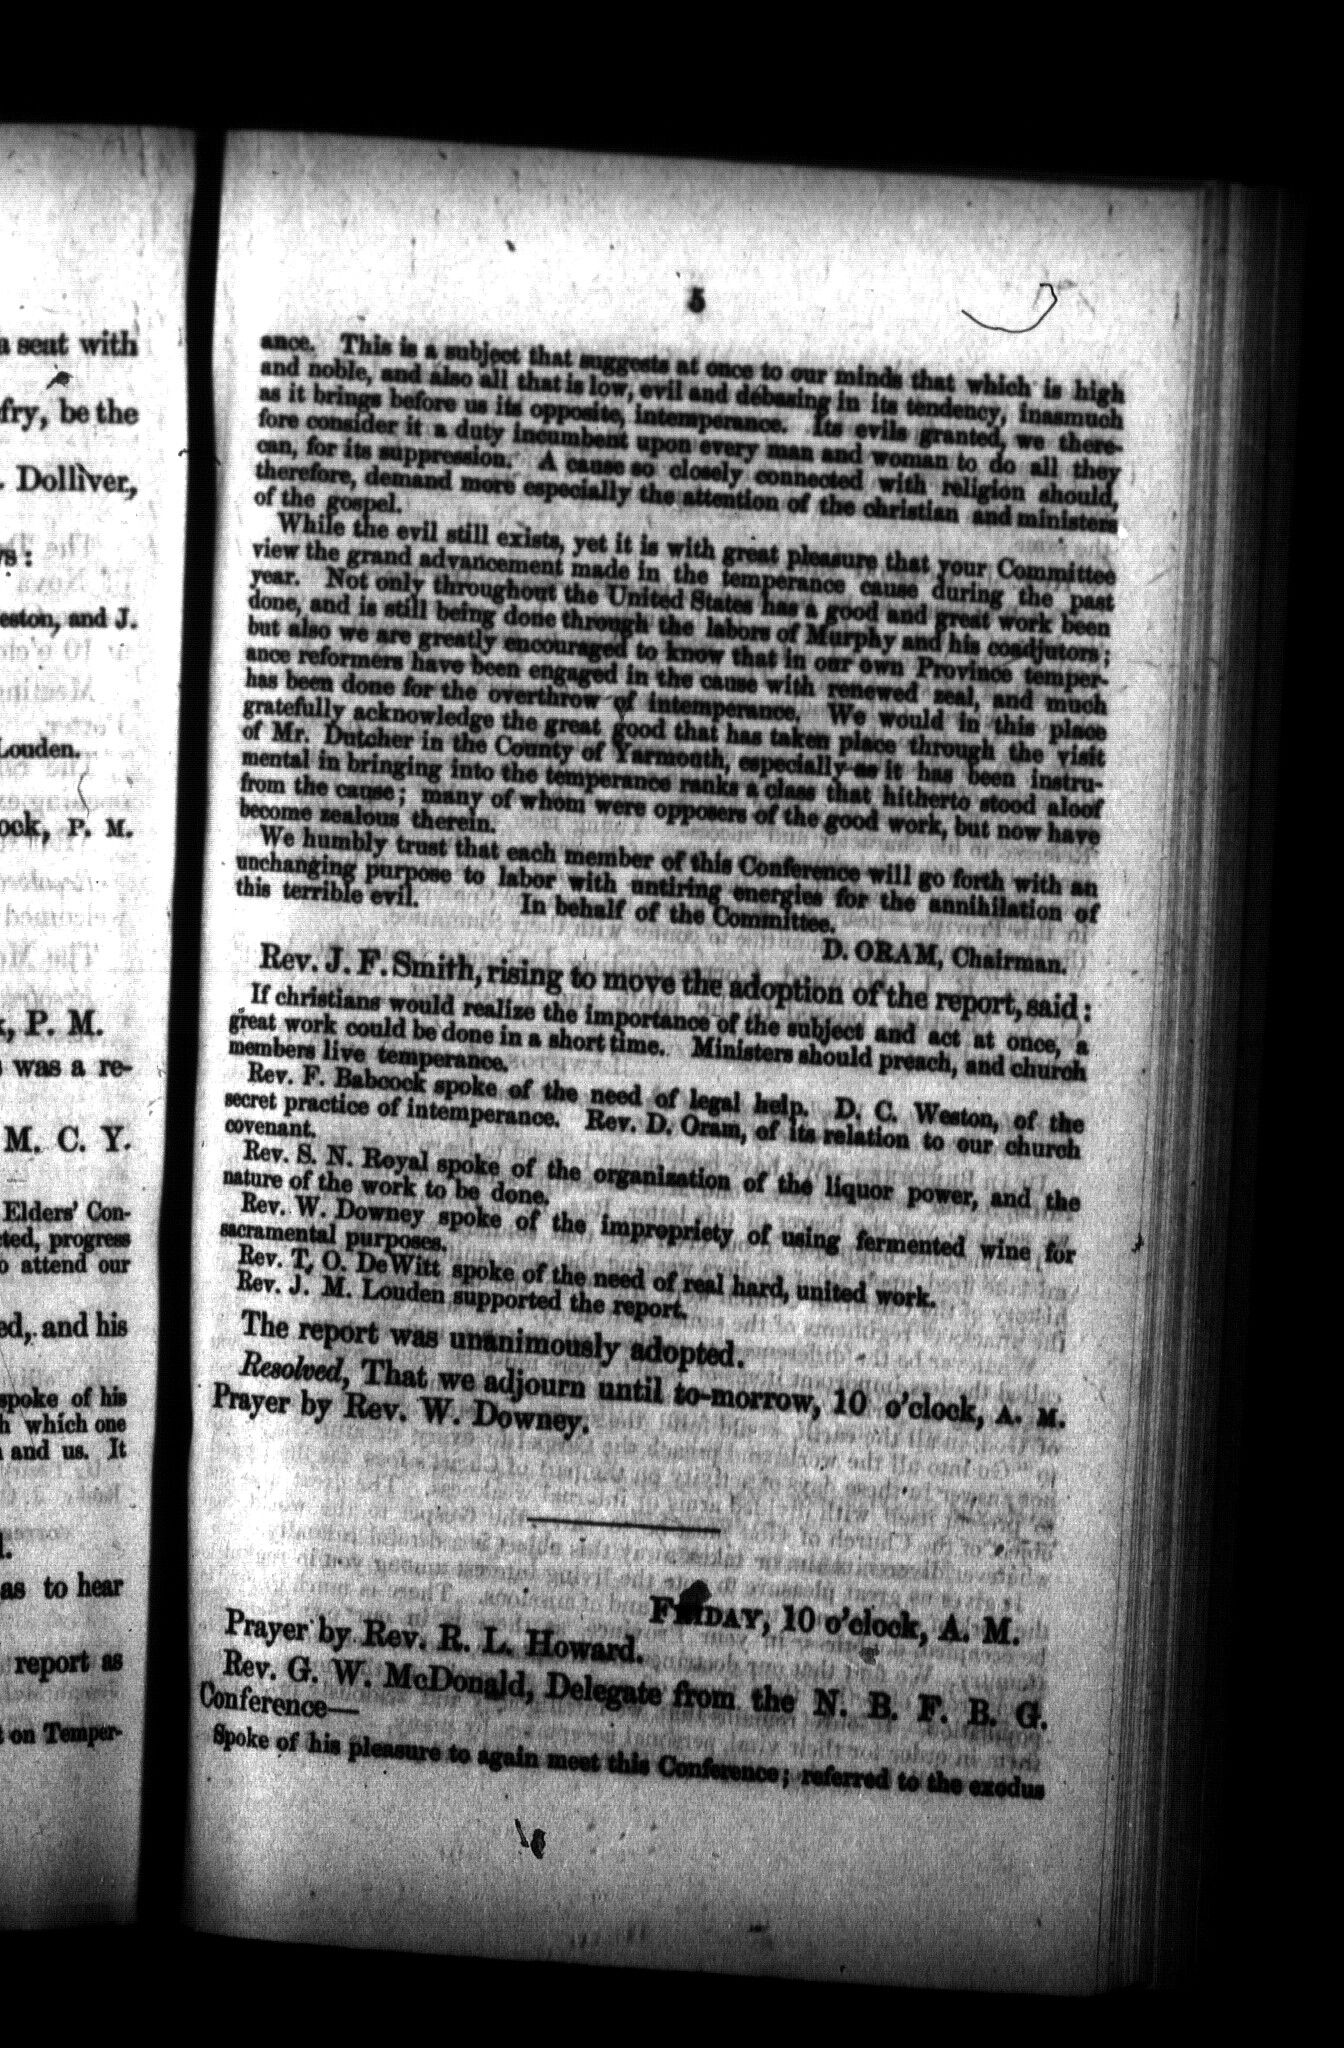 a seat with
fry, be the
. Dolliver,
ys :
eston, and J.
Louden.
ock, P. M.
k, P. M.
s was a re-
M. C. Y.
Elders' Con-
cted, progress
o attend our
ed, and his
spoke of his
h which one
n and us. It
d.
as to hear
report as
t on Temper-
5
ance. This is a subject that suggests at once to our minds that which is high
and noble, and also all that is low, evil and debasing in its tendency, inasmuch
as it brings before us its opposite, intemperance. Its evils granted, we there-
fore consider it a duty incumbent upon every man and woman to do all they
can, for its suppression. A cause so closely connected with religion should,
therefore, demand more especially the attention of the christian and ministers
of the gospel.
While the evil still exists, yet it is with great pleasure that your Committee
view the grand advancement made in the temperance cause during the past
year. Not only throughout the United States has a good and great work been
done, and is still being done through the labors of Murphy and his coadjutors ;
but also we are greatly encouraged to know that in our own Province temper-
ance reformers have been engaged in the cause with renewed zeal, and much
has been done for the overthrow of intemperance. We would in this place
gratefully acknowledge the great good that has taken place through the visit
of Mr. Dutcher in the County of Yarmouth, especially as it has been instru-
mental in bringing into the temperance ranks a class that hitherto stood aloof
from the cause ; many of whom were opposers of the good work, but now have
become zealous therein.
We humbly trust that each member of this Conference will go forth with an
unchanging purpose to labor with untiring energies for the annihilation of
this terrible evil. In behalf of the Committee.
D. ORAM, Chairman.
Rev. J. F. Smith, rising to move the adoption of the report, said :
If christians would realize the importance of the subject and act at once, a
great work could be done in a short time. Ministers should preach, and church
members live temperance.
Rev. F. Babcock spoke of the need of legal help. D. C. Weston, of the
secret practice of intemperance. Rev. D. Oram, of its relation to our church
covenant.
Rev. S. N. Royal spoke of the organization of the liquor power, and the
nature of the work to be done.
Rev. W. Downey spoke of the impropriety of using fermented wine for
sacramental purposes.
Rev. T. O. DeWitt spoke of the need of real hard, united work.
Rev. J. M. Louden supported the report.
The report was unanimously adopted.
Resolved, That we adjourn until to-morrow, 10 o'clock, A. M.
Prayer by Rev. W. Downey.
FRIDAY, 10 o'clock, A. M.
Prayer by Rev. R. L. Howard.
Rev. G. W. McDonald, Delegate from the N. B. F. B. G.
Conference—
Spoke of his pleasure to again meet this Conference ; referred to the exodus